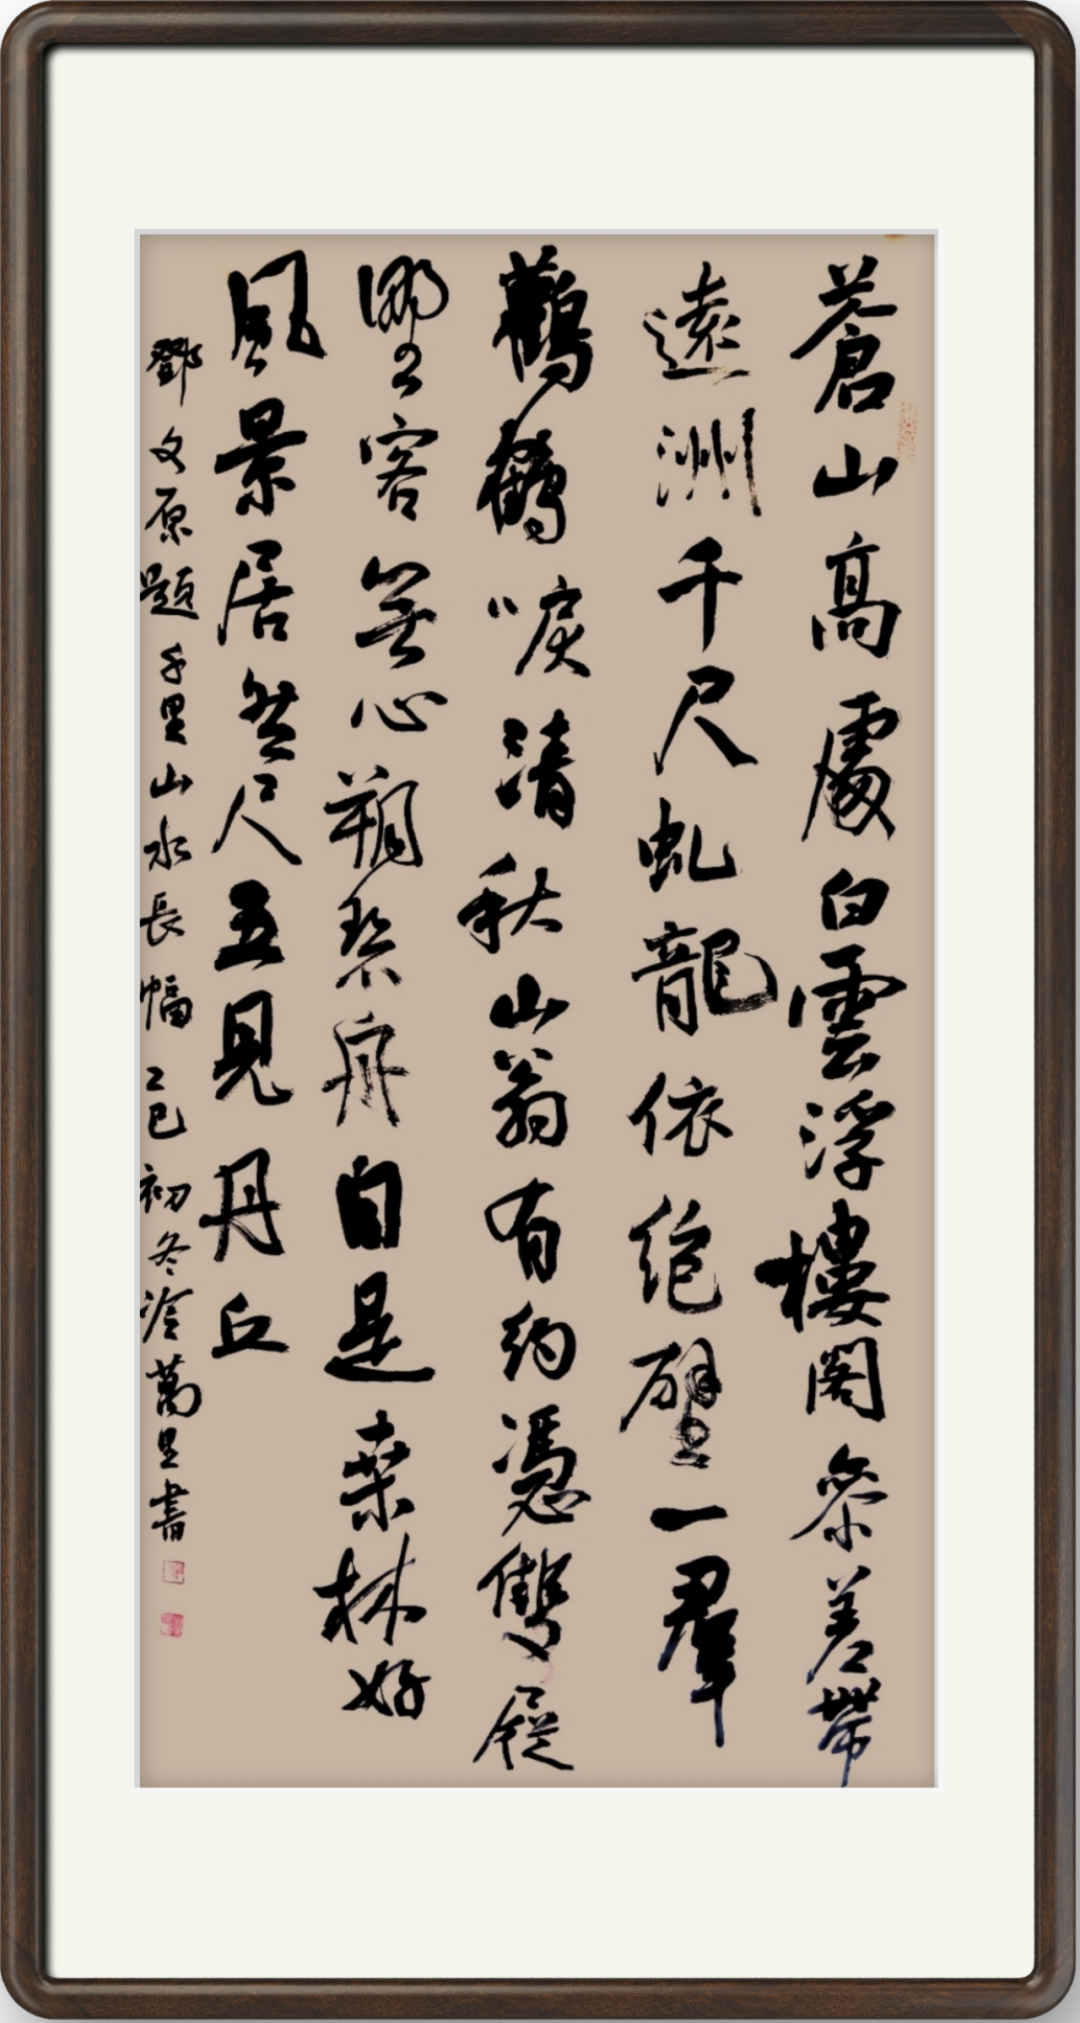 蒼山高處白雲浮樓閣參差帶
遠洲千尺虬龍依絕壁一羣
鸛鶴唳清秋山翁有約憑雙屐
野客無心溯碧舟自是桑林好
風景居然尺五見丹丘
鄧文原題千里山水長幅乙巳初冬冷萬里書